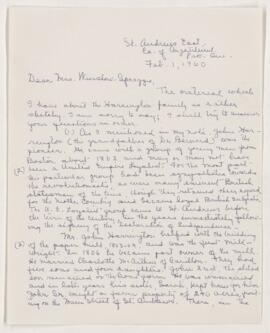 St. Andrews East,
Co. of Argenteuil,
Pro. Que.
Feb. 1, 1960
Dear Mrs. Winslow-Spragge,
The material which
I have about the Harrington family is rather
sketchy, I am sorry to say; I shall try to answer
your questions in order.
(1) As I mentioned in my note, John Har-
rington (the grandfather of Dr. Bernard) was the
pioneer. He came with a group of young men from
Boston about 1802 and may or may not have
been a United Empire Loyalist. For the most part
this particular group had been sympathetic towards
the revolutionists, as were many eminent British
statesmen of the time, though they retained their regard
for the mother country and became loyal British subjects.
The U. E. Loyalist group came to St. Andrews before
the turn of the century in the years immediately follow-
ing the signing of the Declaration of Independence.
Mr. John Harrington helped with the building
of the paper mill 1803-04, and was the first Mill-
wright. In 1806 he became part owner of the mill.
He married Charlotte McArthur of Carillon. They had
five sons and four daughters. John
son remained in the home
and in later years his sister Sarah kept house for him.
John Sr. bought a farm property of 240 acres, front-
ing on the Main Street of St. Andrews. There, in the